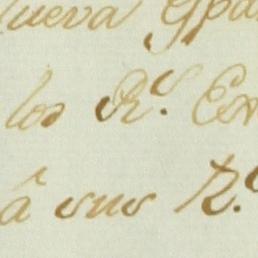 ueva Spa
los R.s Ex
â sus R.